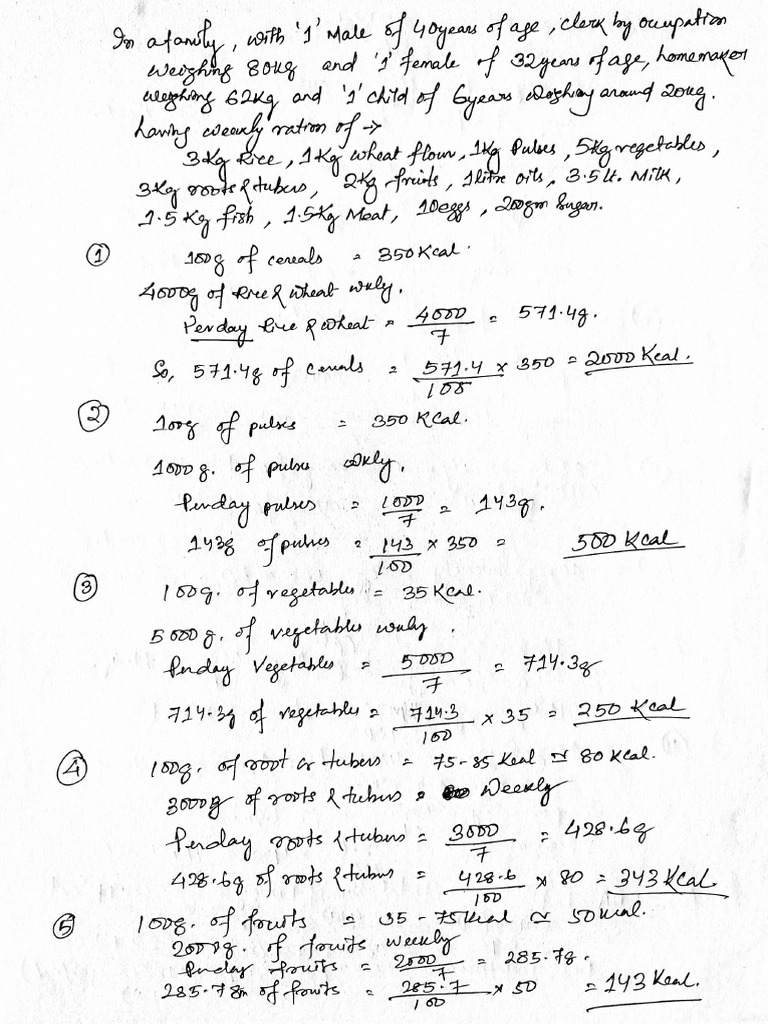 In a family, with '1' Male of 40years of age, clerk by occupation
weighing 80kg and '1' female of 32years of age, homemaker
weighing 62kg and '1' child of 6years weighing around 20kg.
having weekly ration of →
3Kg Rice, 1Kg wheat flour, 1Kg Pulses, 5Kg vegetables,
3Kg roots & tubers, 2Kg fruits, 1litre oils, 3.5 lt. Milk,
1.5 Kg fish, 1.5Kg Meat, 10eggs, 200gm Sugar.
① 100g of cereals = 350Kcal.
4000g of Rice & wheat wkly.
Perday Rice & wheat = 4000/7 = 571.4g.
So, 571.4g of cereals = 571.4/100 x 350 = 2000 Kcal.
② 100g of pulses = 350 Kcal.
1000 g. of pulses wkly.
Perday pulses = 1000/7 = 143g.
143g of pulses = 143/100 x 350 = 500 Kcal
③ 100g. of vegetables = 35 Kcal.
5000 g. of vegetables wkly.
Perday Vegetables = 5000/7 = 714.3g
714.3g of vegetables = 714.3/100 x 35 = 250 Kcal
④ 100g. of root or tubers = 75-85 Kcal ≃ 80 Kcal.
3000g of roots & tubers Weekly
Perday roots & tubers = 3000/7 = 428.6g
428.6g of roots & tubers = 428.6/100 x 80 = 343 Kcal
⑤ 100g. of fruits = 35 - 75 Kcal ≃ 50 Kcal.
2000g. of fruits weekly
Perday fruits = 2000/7 = 285.7g.
285.7gm of fruits = 285.7/100 x 50 = 143 Kcal.